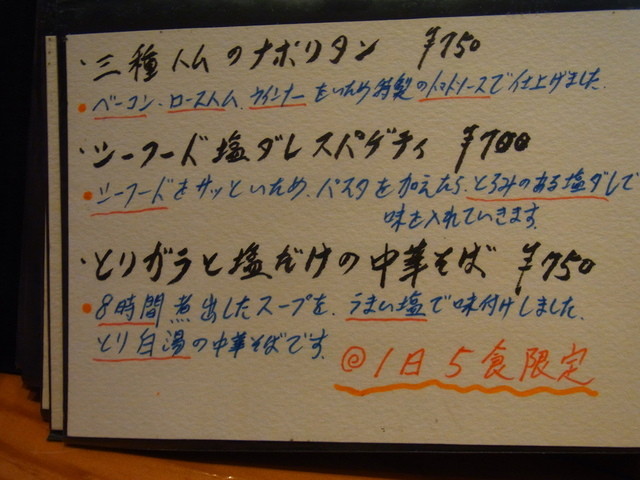 ・三種ハムのナポリタン ¥750
●ベーコン・ローストハム、ウインナーをいため特製のトマトソースで仕上げました。
・シーフード塩ダレスパゲティ ¥700
●シーフードをサッといため、パスタを加えたら、とろみのある塩ダレで
味を入れていきます。
・とりガラと塩だけの中華そば ¥750
●8時間煮出したスープを、うまい塩で味付けしました。
とり白湯の中華そばです。
@1日5食限定